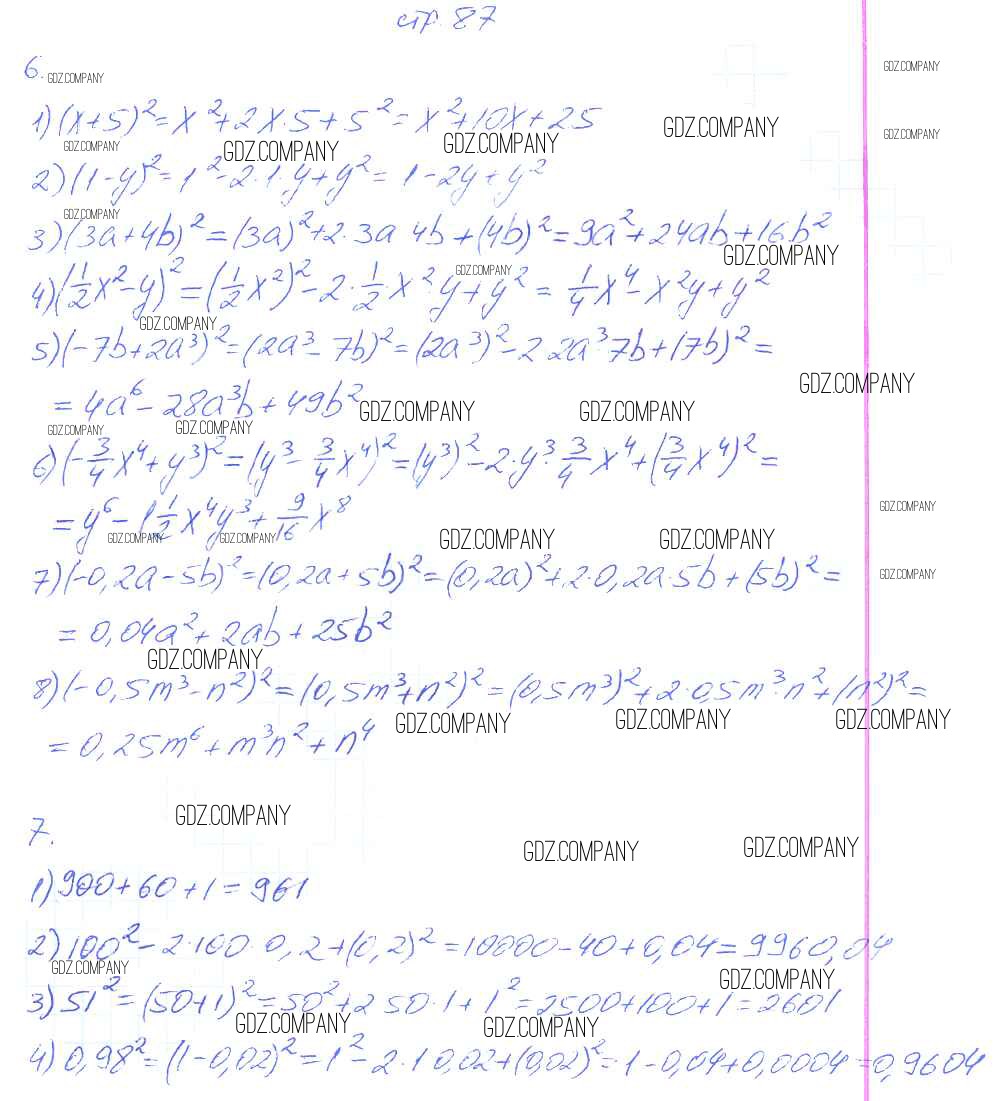 стр. 87
6.
GDZ.COMPANY
GDZ.COMPANY
1) (x+5)² = x²+2x·5+5² = x²+10x+25
GDZ.COMPANY GDZ.COMPANY GDZ.COMPANY GDZ.COMPANY GDZ.COMPANY
2) (1-y)² = 1²-2·1·y+y² = 1-2y+y²
GDZ.COMPANY
3) (3a+4b)² = (3a)²+2·3a 4b+(4b)² = 9a²+24ab+16b²
GDZ.COMPANY GDZ.COMPANY
4) (1/2x²-y)² = (1/2x²)²-2·1/2x²·y+y² = 1/4x⁴-x²y+y²
GDZ.COMPANY
5) (-7b+2a³)² = (2a³-7b)² = (2a³)²-2·2a³·7b+(7b)² =
GDZ.COMPANY
= 4a⁶-28a³b+49b²
GDZ.COMPANY GDZ.COMPANY
GDZ.COMPANY GDZ.COMPANY
6) (-3/4x⁴+y³)² = (y³-3/4x⁴)² = (y³)²-2·y³·3/4x⁴+(3/4x⁴)² =
GDZ.COMPANY
= y⁶-1 1/2x⁴y³+9/16x⁸
GDZ.COMPANY GDZ.COMPANY GDZ.COMPANY GDZ.COMPANY
7) (-0,2a-5b)² = (0,2a+5b)² = (0,2a)²+2·0,2a·5b+(5b)² =
GDZ.COMPANY
= 0,04a²+2ab+25b²
GDZ.COMPANY
8) (-0,5m³-n²)² = (0,5m³+n²)² = (0,5m³)²+2·0,5m³·n²+(n²)² =
GDZ.COMPANY GDZ.COMPANY GDZ.COMPANY
= 0,25m⁶+m³n²+n⁴
GDZ.COMPANY
7.
GDZ.COMPANY GDZ.COMPANY
1) 900+60+1 = 961
2) 100²-2·100·0,2+(0,2)² = 10000-40+0,04 = 9960,04
GDZ.COMPANY GDZ.COMPANY
3) 51² = (50+1)² = 50²+2 50·1+1² = 2500+100+1 = 2601
GDZ.COMPANY GDZ.COMPANY
4) 0,98² = (1-0,02)² = 1²-2·1 0,02+(0,02)² = 1-0,04+0,0004 = 0,9604